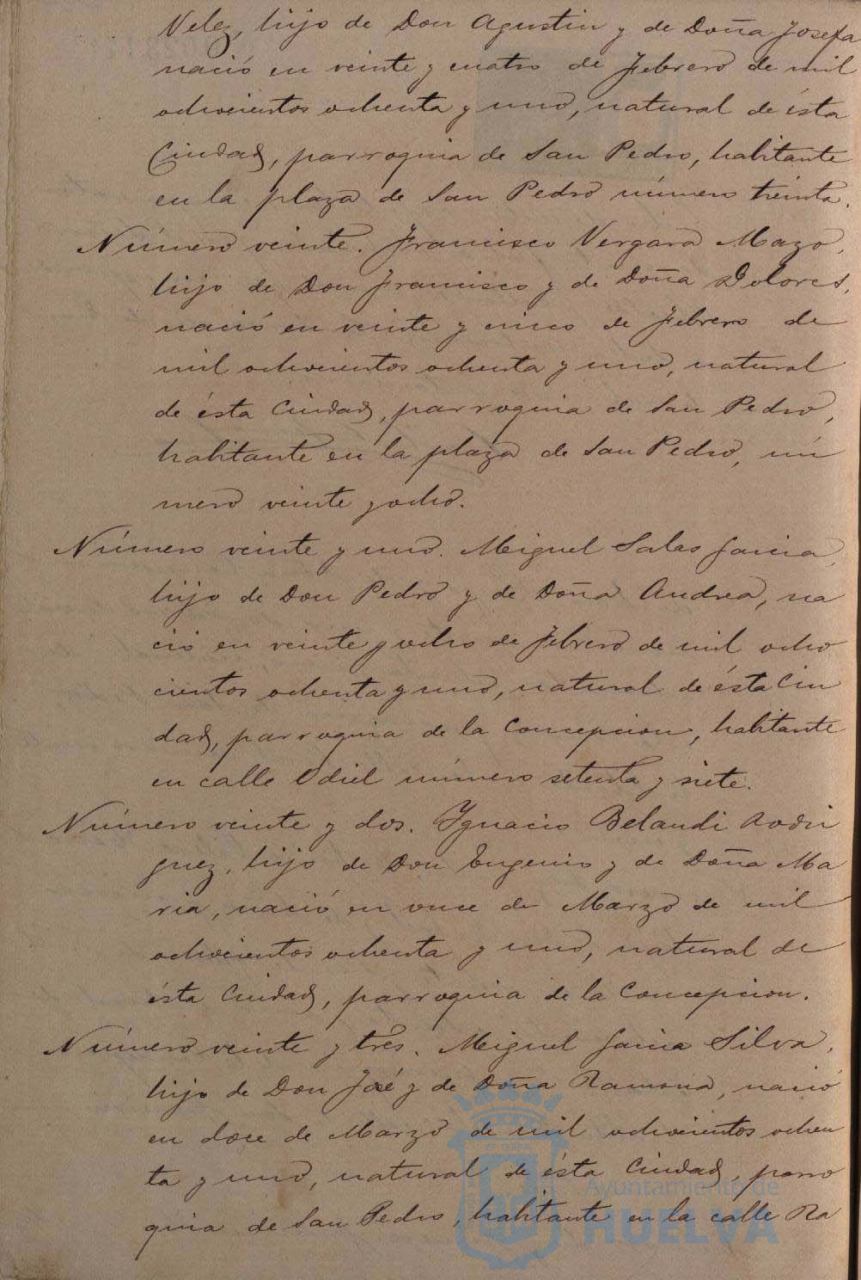 Velez, hijo de Don Agustin y de Doña Josefa
nació en veinte y cuatro de Febrero de mil
ochocientos ochenta y uno, natural de ésta
Ciudad, parroquia de San Pedro, habitante
en la plaza de San Pedro número treinta.
Número veinte. Francisco Vergara Mazo,
hijo de Don Francisco y de Doña Dolores,
nació en veinte y cinco de Febrero de
mil ochocientos ochenta y uno, natural
de ésta Ciudad, parroquia de San Pedro,
habitante en la plaza de San Pedro, nú
mero veinte y ocho.
Número veinte y uno. Miguel Salas Garcia,
hijo de Don Pedro y de Doña Andrea, na
ció en veinte y ocho de Febrero de mil ocho
cientos ochenta y uno, natural de ésta Ciu
dad, parroquia de la Concepcion, habitante
en calle Odiel número setenta y siete.
Número veinte y dos. Ignacio Belandi Rodri
guez, hijo de Don Eugenio y de Doña Ma
ria, nació en once de Marzo de mil
ochocientos ochenta y uno, natural de
ésta Ciudad, parroquia de la Concepcion.
Número veinte y trés. Miguel Garcia Silva,
hijo de Don José y de Doña Ramona, nació
en doce de Marzo de mil ochocientos ochen
ta y uno, natural de ésta Ciudad, parro
quia de San Pedro, habitante en la calle Ra
Ayuntamiento de
HUELVA